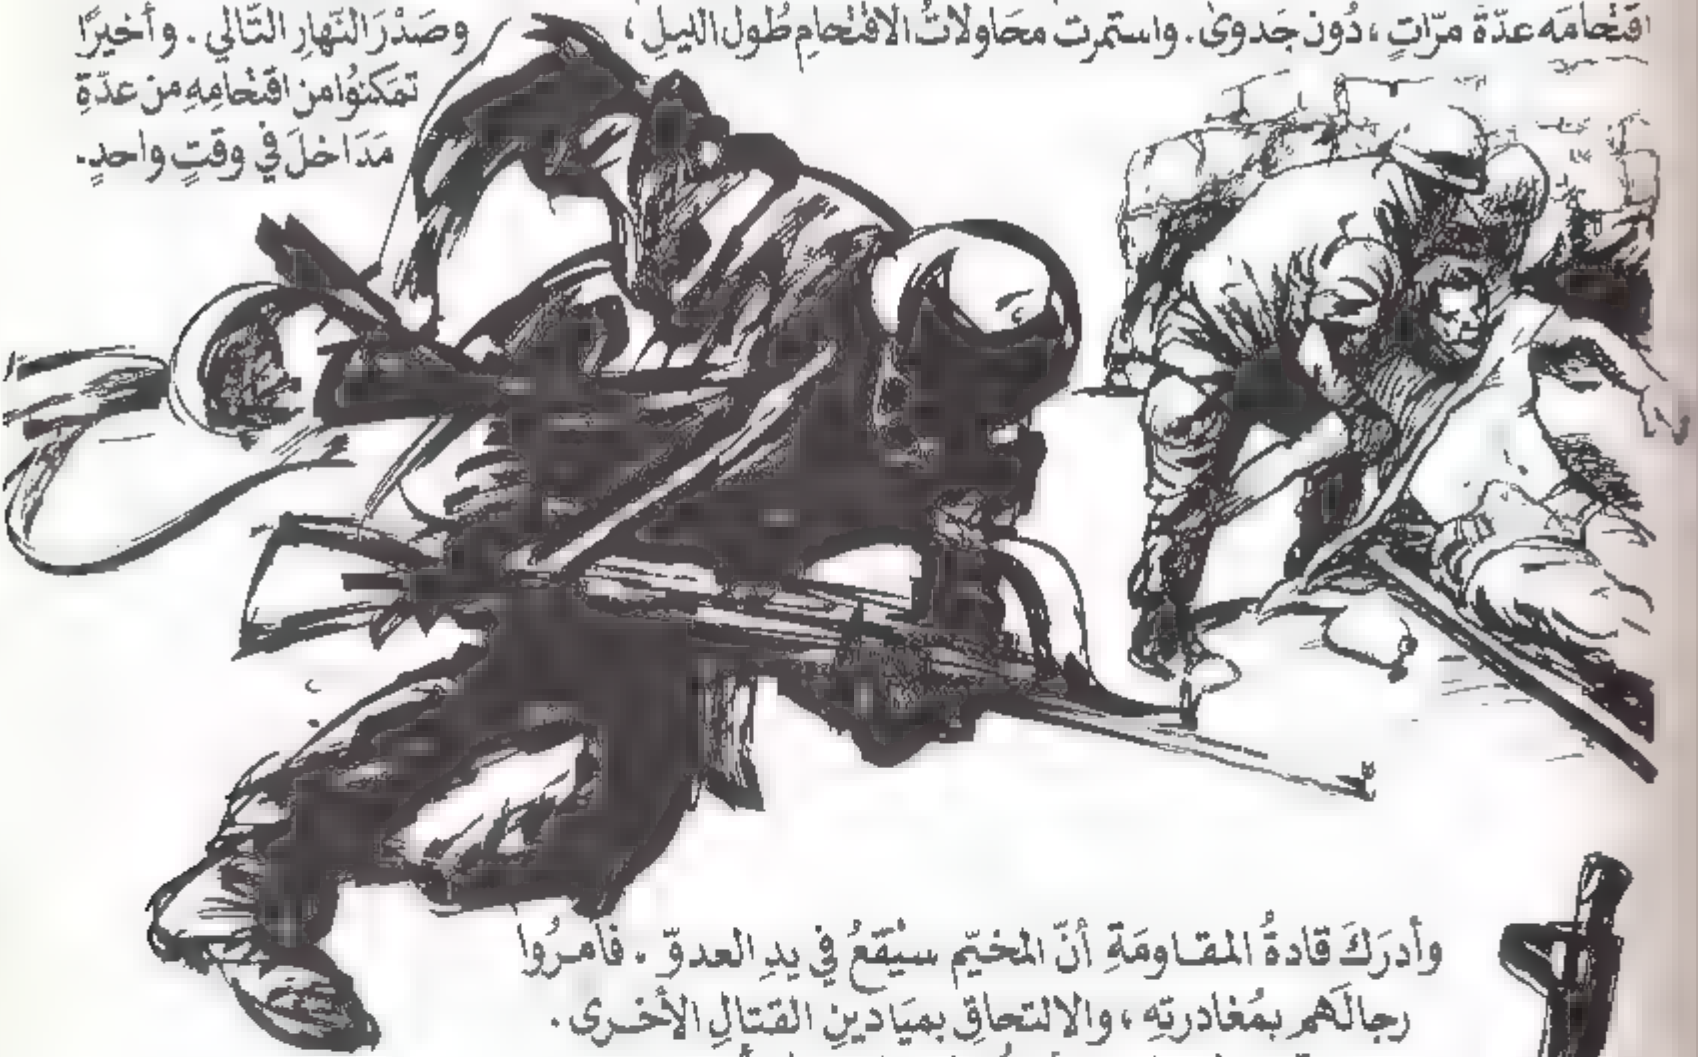 اقتحامَه عدّةَ مرّاتٍ، دُون جَدوى. واستمرت محَاولاتُ الاقتحامِ طُول الليلِ،
وصَدْرَ النّهارِ التّالي. وأخيرًا
تمَكنوُا من اقتحامِهِ من عدّةِ
مَدَاخلَ في وقتٍ واحدٍ.
وأدرَكَ قادةُ المقاومَةِ أنّ المخيّم سيْقعُ في يدِ العدوّ. فامرُوا
رجالَهم بمُغادرتِه، والالتحاقِ بميَادينِ القتالِ الأخرى.